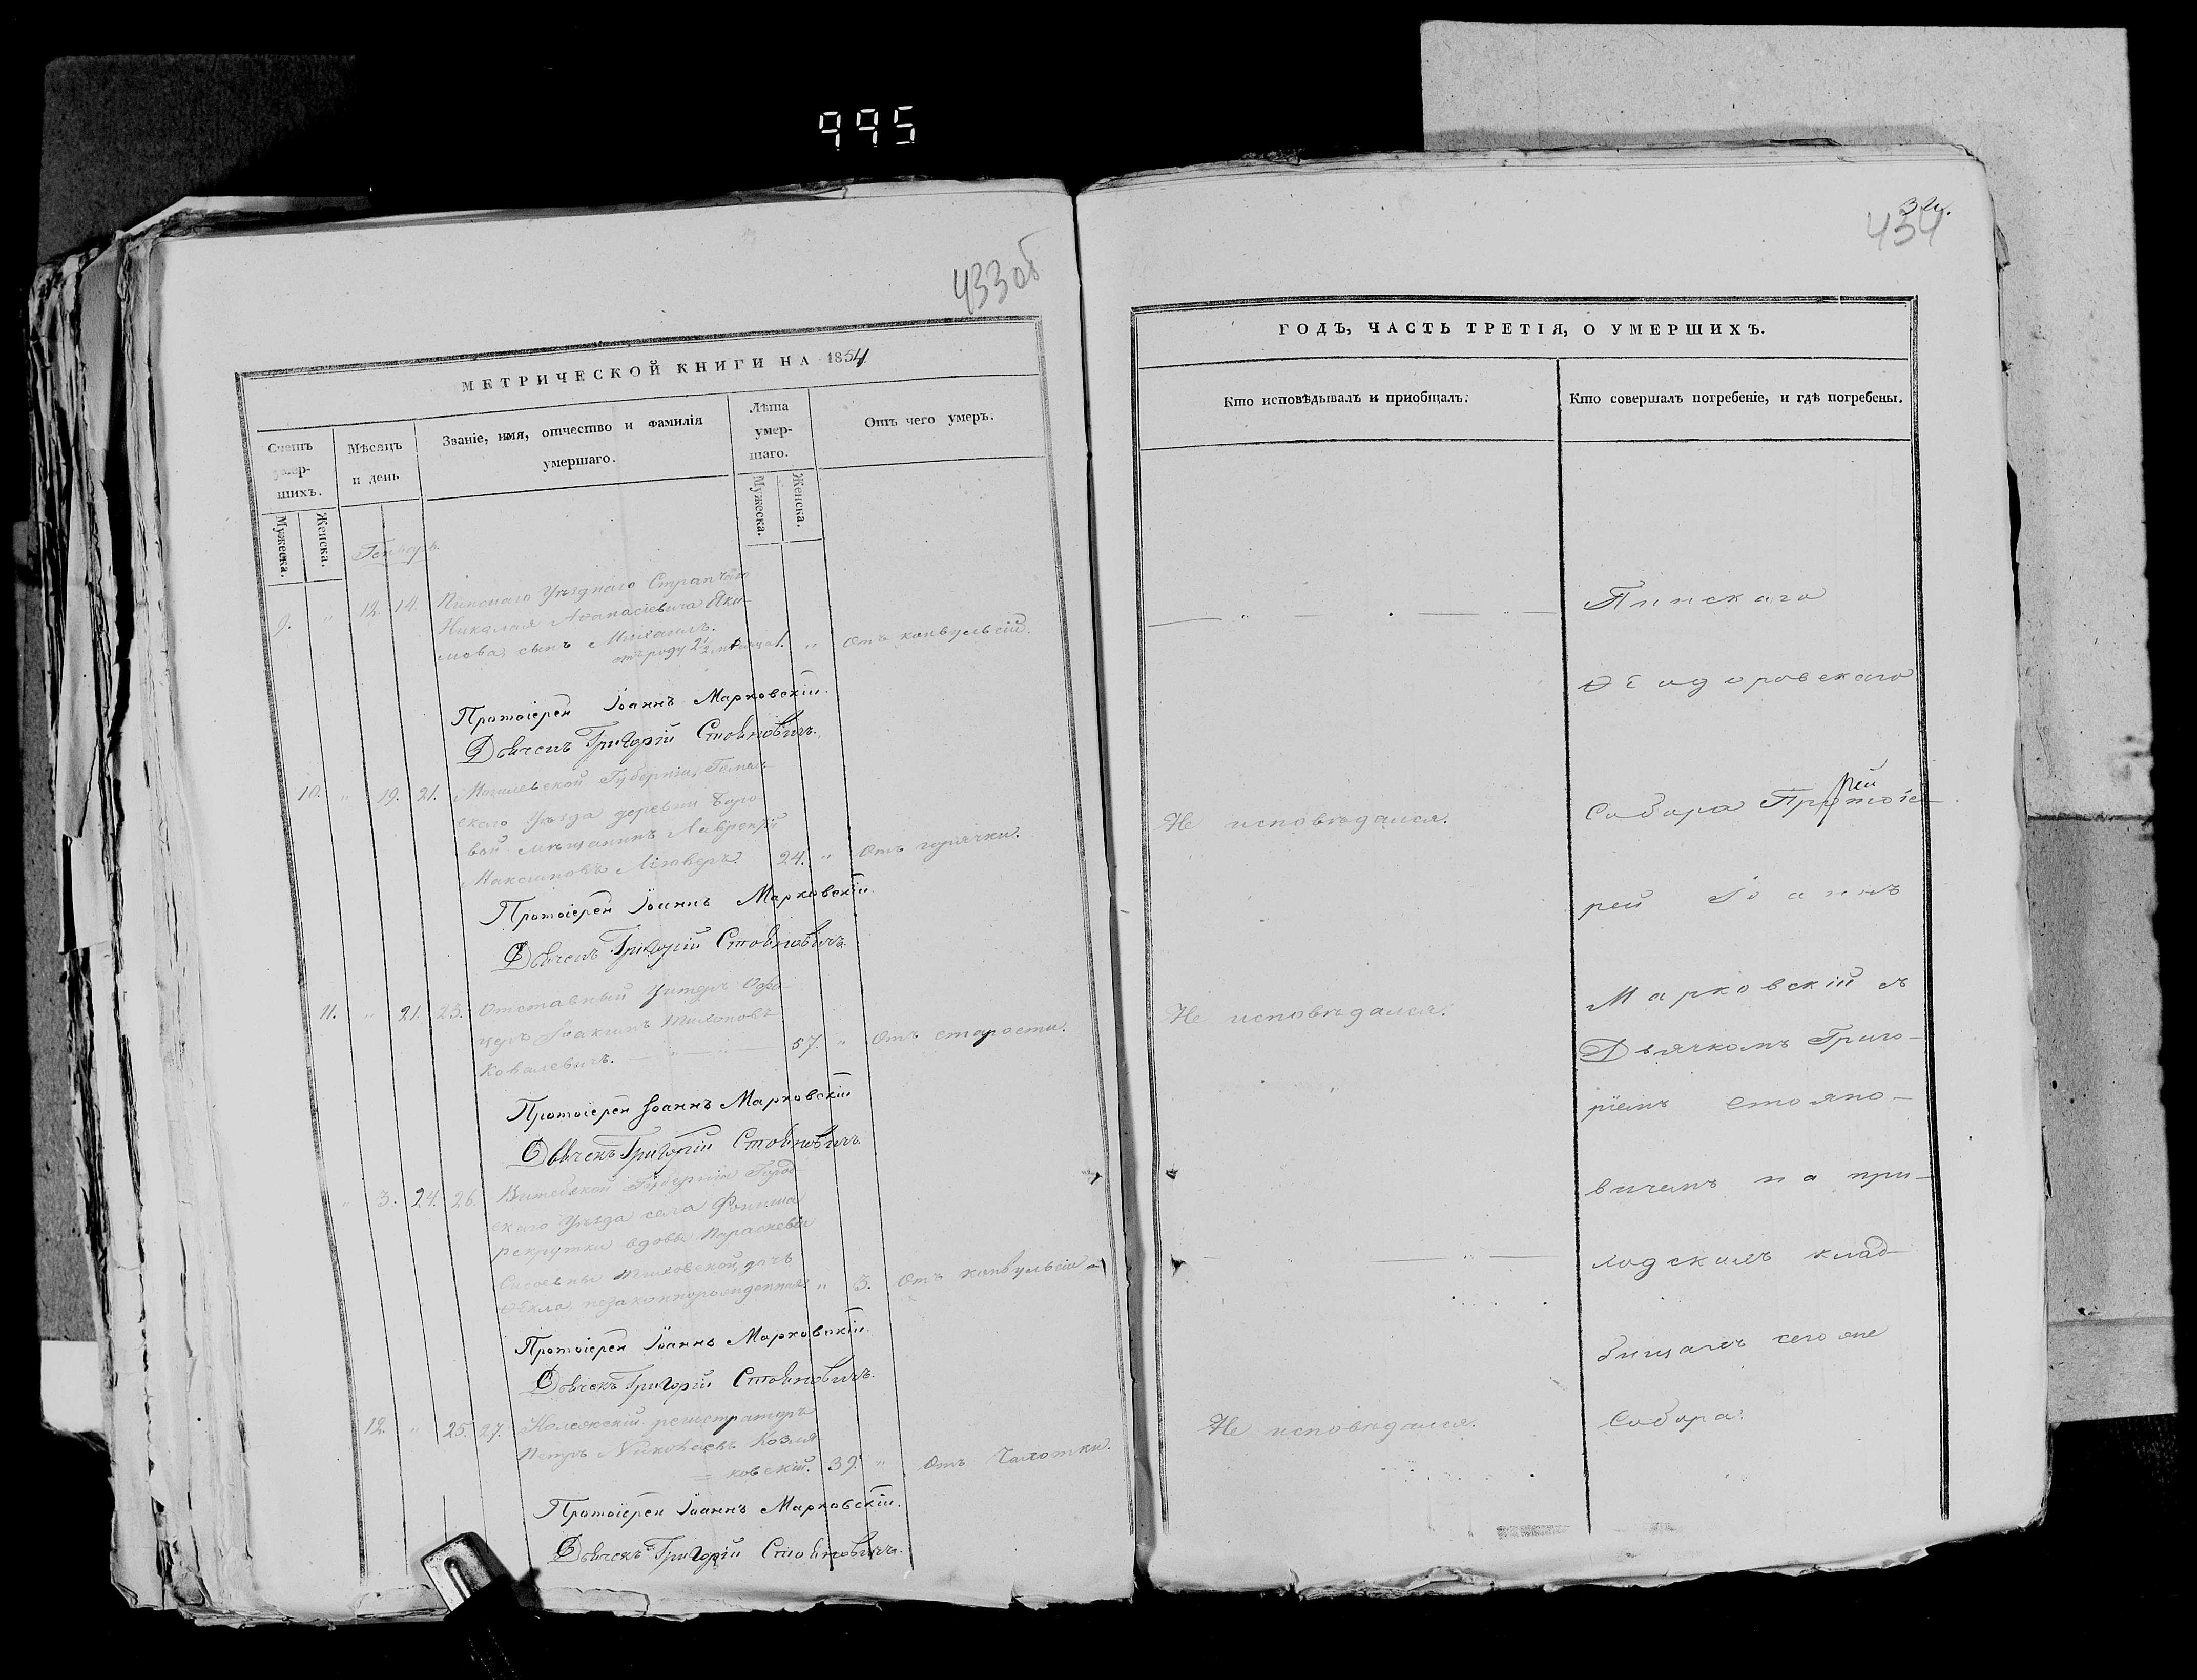 995
433 об
МЕТРИЧЕСКОЙ КНИГИ НА 1854
Счетъ умер-шихъ.
Мужеска.
Женска.
Мѣсяцъ и день
Званіе, имя, отчество и фамилія умершаго.
Лѣта умер-шаго.
Мужеска.
Женска.
Отъ чего умеръ.
Генварь
9. " 12. 14. Пинскаго Уѣзднаго Стряпчаго
Николая Аѳанасіевича Яки-
мова, сынъ Михаилъ.
отъ роду 2½ мѣсяца " Отъ конвульсій.
Протоіерей Іоаннъ Марковскій.
Дьячекъ Григорій Стояновичъ.
10. " 19. 21. Могилевской Губерніи, Гомель-
скаго Уѣзда деревни
вой мѣщанинъ Лаврентій
Максимовъ 24. " Отъ горячки.
Протоіерей Іоаннъ Марковскій.
Дьячекъ Григорій Стояновичъ.
11. " 21. 23. Отставный Унтеръ Офи-
церъ Іоакимъ Тихоновъ
Ковалевичъ. 57. " Отъ старости.
Протоіерей Іоаннъ Марковскій
Дьячекъ Григорій Стояновичъ
" 3. 24. 26. Витебской Губерніи Город-
скаго Уѣзда села
рекрутки вдовы Параскевіи
Сисоевны дочь
Ѳекла, незаконнорожденная " 3. Отъ конвульсіи
Протоіерей Іоаннъ Марковскій
Дьячекъ Григорій Стояновичъ.
12. " 25. 27. Коллежскій регистраторъ
Петръ Николаевъ Козля-
ковскій. 39. " Отъ Чахотки.
Протоіерей Іоаннъ Марковскій.
Дьячекъ Григорій Стояновичъ.
434
ГОДЪ, ЧАСТЬ ТРЕТІЯ, О УМЕРШИХЪ.
Кто исповѣдывалъ и пріобщалъ.
Кто совершалъ погребеніе, и гдѣ погребены.
Не исповѣдался.
Не исповѣдался.
Не исповѣдался.
Пинскаго
Ѳеодоровскаго
рей
Собора Протоіе-
рей Іоаннъ
Марковскій съ
Дьячкомъ Григо-
ріемъ Стояно-
вичемъ на при-
ходскомъ клад-
бищѣ сего же
Собора.